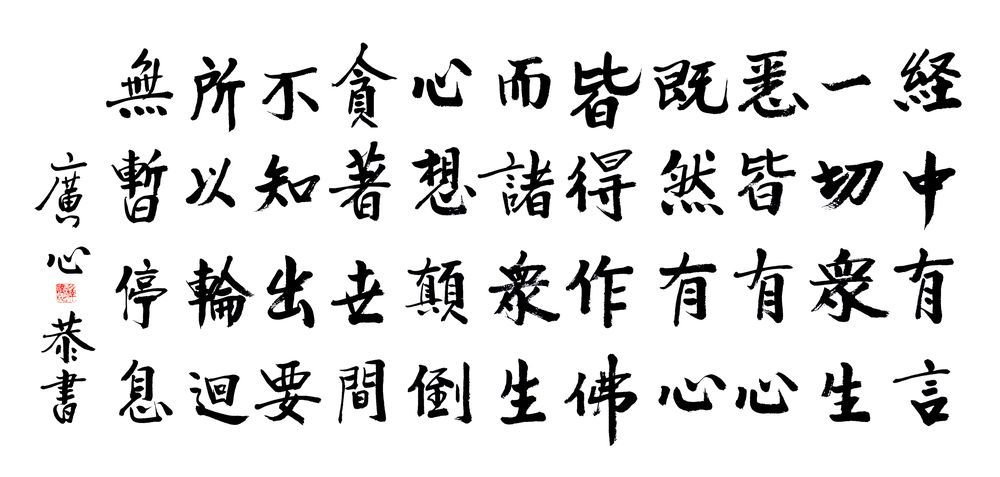 経中有言
一切眾生
悉皆有心
既然有心
皆得作佛
而諸眾生
心想顛倒
貪著世間
不知出要
所以輪迴
無暫停息
廣心恭書